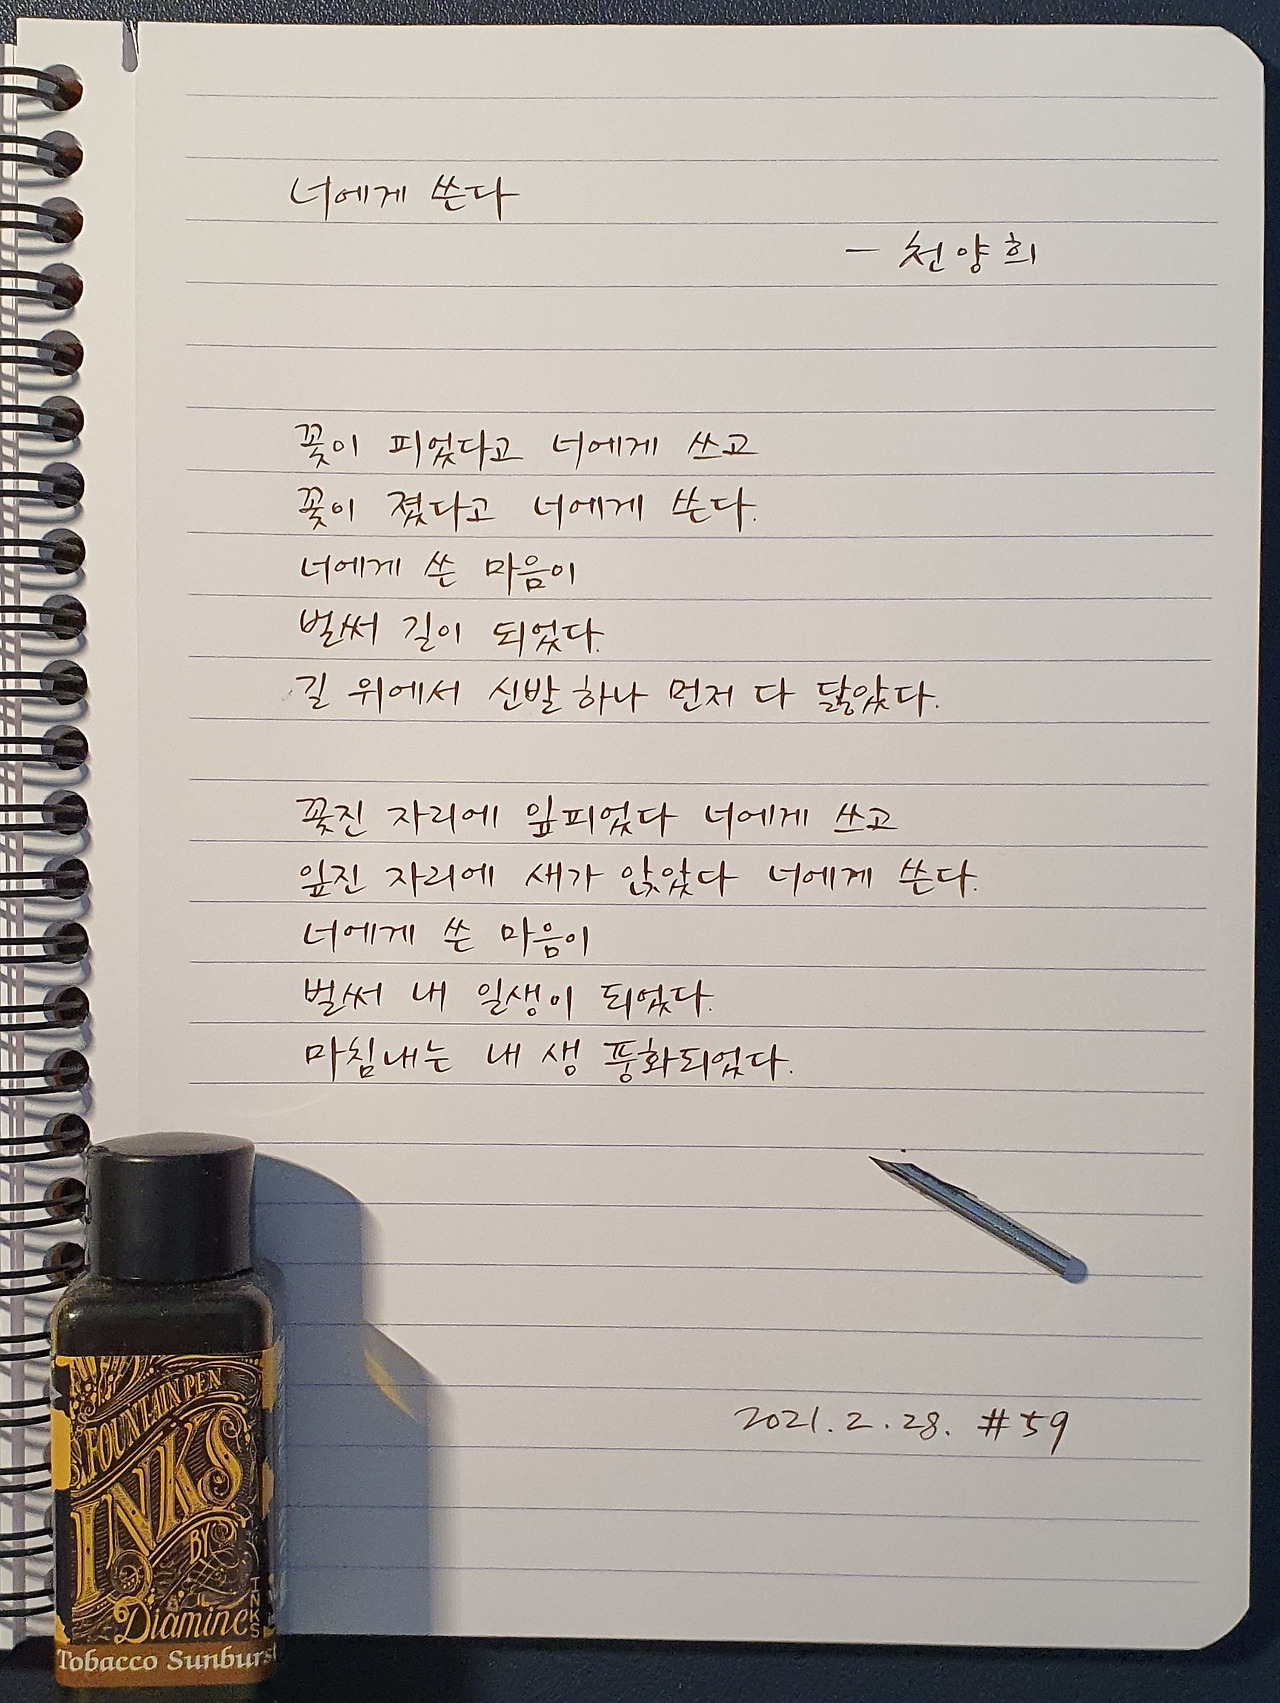 너에게 쓴다
- 천양희
꽃이 피었다고 너에게 쓰고
꽃이 졌다고 너에게 쓴다.
너에게 쓴 마음이
벌써 길이 되었다.
길 위에서 신발 하나 먼저 다 닳았다.
꽃진 자리에 잎피었다 너에게 쓰고
잎진 자리에 새가 앉았다 너에게 쓴다.
너에게 쓴 마음이
벌써 내 일생이 되었다.
마침내는 내 생 풍화되었다.
2021.2.28. #59
FOUNTAIN PEN
INKS
BY
Diamine
INKS
Tobacco Sunburst